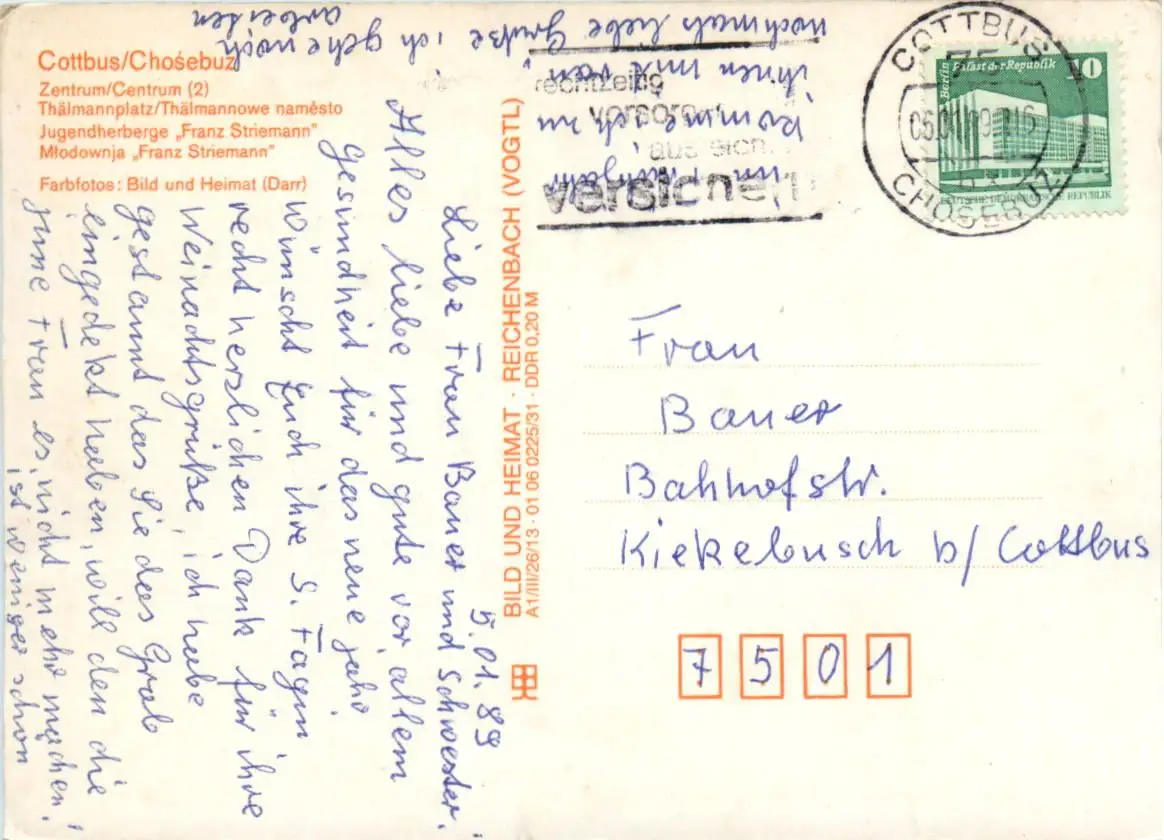 Cottbus/Chośebuz
Zentrum/Centrum (2)
Thälmannplatz/Thälmannowe naměsto
Jugendherberge „Franz Striemann"
Młodownja „Franz Striemann"
Farbfotos: Bild und Heimat (Darr)
BILD UND HEIMAT · REICHENBACH (VOGTL)
A1/III/26/13 · 01 06 0225/31 · DDR 0,20 M
5.01.89
Liebe Frau Bauer und Schwester.
Alles liebe und gute vor allem
gesundheit für das neue jahr
wünscht Euch ihre S. Fagin
recht herslichen Dank für ihre
Weinachtsgrüße, ich habe
gestannt das Sie das Grab
eingedekt haben, will den die
june Frau es nicht mehr machen!
ist weniger schon
im Frühjahr
komme ich zu
ihnen mit ran
nochmals liebe Grüße ich gehe noch
arbeiten
rechtzeitig
vorsorgen
aus sich
versichern
COTTBUS
75
05.01.89
CHOŚEBUZ
Berlin Palast der Republik
10
DEUTSCHE DEMOKRATISCHE REPUBLIK
Frau
Bauer
Bahhofstr.
Kiekebusch b/ Cottbus
7501